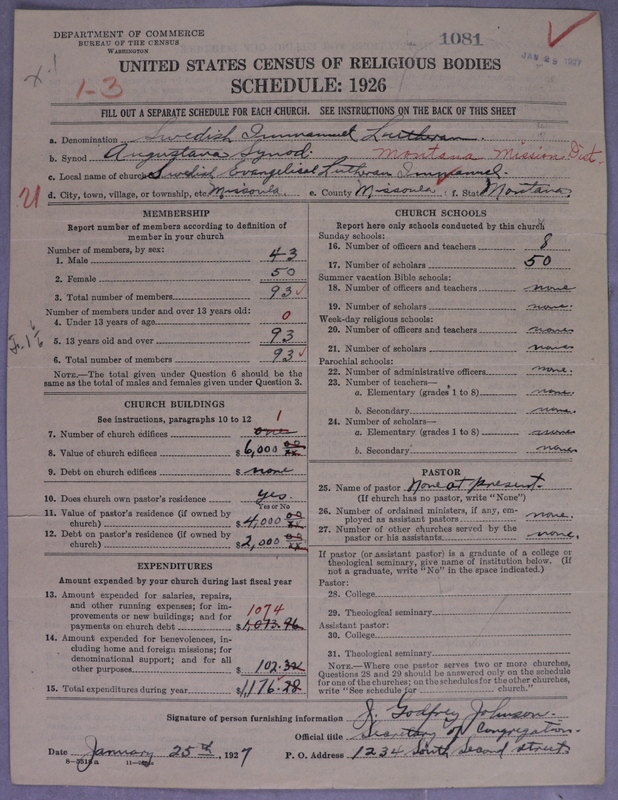 DEPARTMENT OF COMMERCE
BUREAU OF THE CENSUS
WASHINGTON
1081
JAN 29 1927
x-1
1-3
UNITED STATES CENSUS OF RELIGIOUS BODIES
SCHEDULE: 1926
FILL OUT A SEPARATE SCHEDULE FOR EACH CHURCH. SEE INSTRUCTIONS ON THE BACK OF THIS SHEET
a. Denomination Swedish Immanuel Lutheran.
b. Synod Augustana Synod. Montana Missions Dist.
c. Local name of church Swedish Evangelical Lutheran Immanuel.
d. City, town, village, or township, etc. Missoula. e. County Missoula f. State Montana
21
MEMBERSHIP
Report number of members according to definition of
member in your church
Number of members, by sex:
1. Male 43
2. Female 50
3. Total number of members 93
Number of members under and over 13 years old:
4. Under 13 years of age 0
5. 13 years old and over 93
6. Total number of members 93
NOTE.—The total given under Question 6 should be
same as the total of males and females given under Question 3.
CHURCH BUILDINGS
See instructions, paragraphs 10 to 12
7. Number of church edifices 1
8. Value of church edifices $6,000 00 xx
9. Debt on church edifices $ none
10. Does church own pastor's residence yes.
Yes or No
11. Value of pastor's residence (if owned by
church) $4,000 00 xx
12. Debt on pastor's residence (if owned by
church) $2,000 00 xx
EXPENDITURES
Amount expended by your church during last fiscal year
13. Amount expended for salaries, repairs,
and other running expenses; for im-
provements or new buildings; and for
payments on church debt 1074 $1,073.96
14. Amount expended for benevolences, in-
cluding home and foreign missions; for
denominational support; and for all
other purposes $ 102.32
15. Total expenditures during year $1,176.28
CHURCH SCHOOLS
Report here only schools conducted by this church
Sunday schools:
16. Number of officers and teachers 8
17. Number of scholars 50
Summer vacation Bible schools:
18. Number of officers and teachers none
19. Number of scholars none.
Week-day religious schools:
20. Number of officers and teachers none
21. Number of scholars none
Parochial schools:
22. Number of administrative officers none.
23. Number of teachers—
a. Elementary (grades 1 to 8) none.
b. Secondary none.
24. Number of scholars—
a. Elementary (grades 1 to 8) none
b. Secondary none
PASTOR
25. Name of pastor None at present.
(If church has no pastor, write "None")
26. Number of ordained ministers, if any, em-
ployed as assistant pastors none.
27. Number of other churches served by the
pastor or his assistants none.
If pastor (or assistant pastor) is a graduate of a college or
theological seminary, give name of institution below. (If
not a graduate, write "No" in the space indicated.)
Pastor:
28. College
29. Theological seminary
Assistant pastor:
30. College
31. Theological seminary
NOTE.—Where one pastor serves two or more churches,
Questions 28 and 29 should be answered only on the schedule
for one of the churches; on the schedules for the other churches,
write "See schedule for church."
Signature of person furnishing information J. Godfrey Johnson.
Official title Secretary of Congregation.
Date January 25th, 1927 P. O. Address 1234 South Second Street